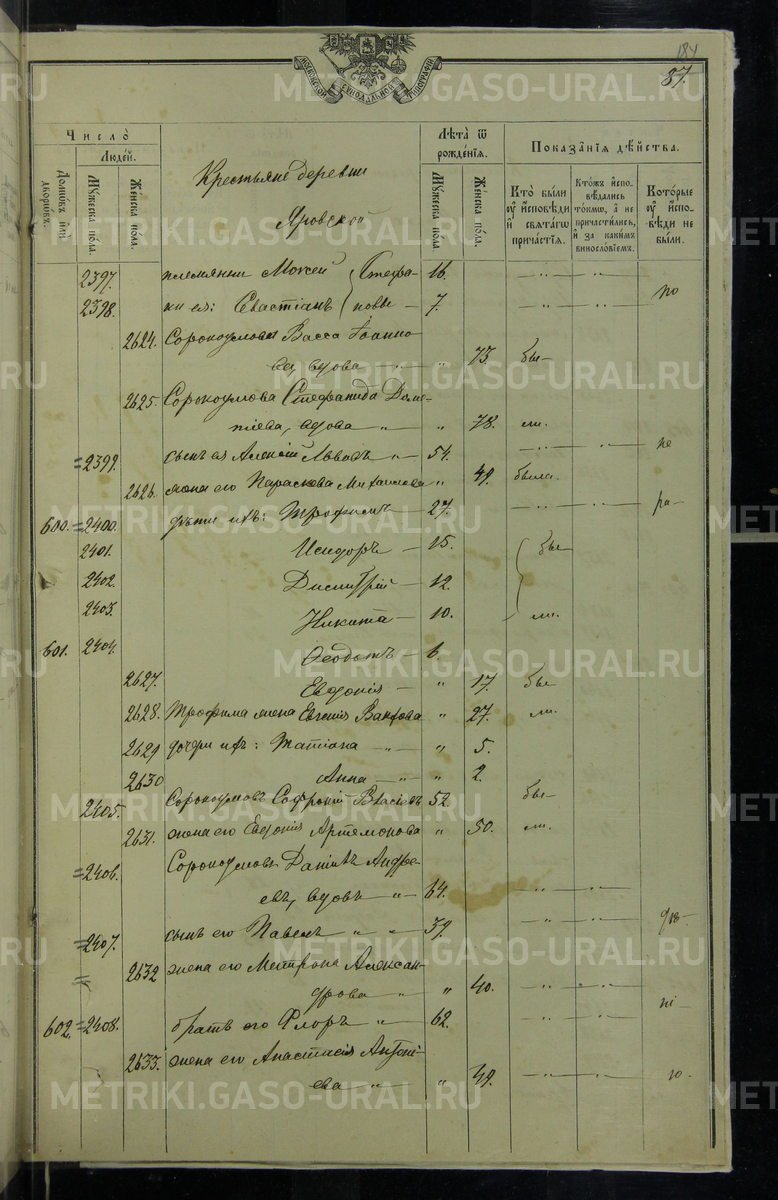 184
37.
МОСКОВСКОЙ СѴНОДАЛЬНОЙ ТИПОГРАФІИ
Число̀
Людей.
Домовъ или дворовъ.
Мужеска пола.
Женска пола.
Крестьяне деревни
Яровской
Лѣта ѿ рожденїѧ.
Мужеска пола.
Женска пола.
Показанїѧ дѣйства.
Кто были ѹ исповѣди и свѧтагѡ причастїѧ.
Ктожъ исповѣдались токмѡ, а не причастились, и за какимъ винословїемъ.
Которые ѹ исповѣди не были.
2397. племянни Моѵсей Стефа- 16. — „ — „ —
2398. ки ея: Севастіанъ новы — 7. — „ — „ — по
2624. Сорокоумова Васса Іоанно
ва, вдова — „ 73. бы—
2625. Сорокоумова Стефанида Доме-
тіева, вдова „ — „ 78. ли.
2399. сынъ ея Алексій Львовъ „ — 54. — „ — „ — не
2626. жена его Параскева Михаилова „ 49. была.
600. 2400. дѣти ихъ: Трофимъ — 27. — „ — „ — ра—
2401. Исидоръ — 15. бы—
2402. Димитрій — 12.
2403. Никита — 10. — ли.
601. 2404. Ѳеодотъ — 6.
2627. Евдокія — „ 17. бы—
2628. Трофима жена Евгенія Вакхова „ 27. ли.
2629 дочери ихъ: Татіана — „ — „ 5.
2630 Анна — „ — „ 2.
2405. Сорокоумовъ Софроній Власіевъ 52. бы—
2631. жена его Евдокія Артемонова „ 50. ли.
2406. Сорокоумовъ Даніилъ Андре-
евъ, вдовъ „ — 64. — „ — „ —
2407. сынъ его Павелъ „ „ — 39. — „ — „ — дѣ—
2632 жена его Матрона Алексан-
дрова „ — „ 40. — „ — „ —
ні—
602. 2408. братъ его Флоръ „ — 62. — „ — „ —
2633. жена его Анастасія Антоні-
ева — „ — „ 49. — „ — „ — ю.
METRIKI.GASO-URAL.RU